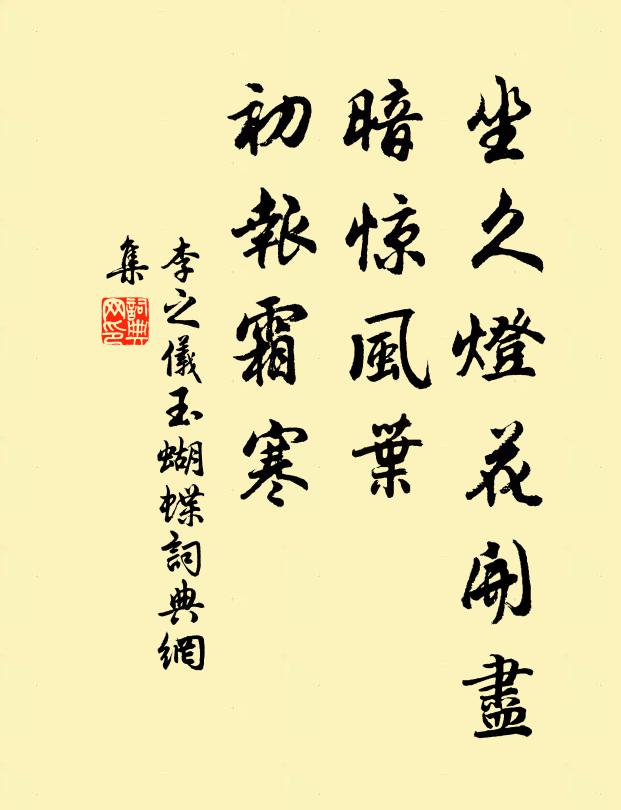 坐久燈花開盡
暗惊風葉
初報霜寒
李之儀玉蝴蝶詞典網
集
詞典網印